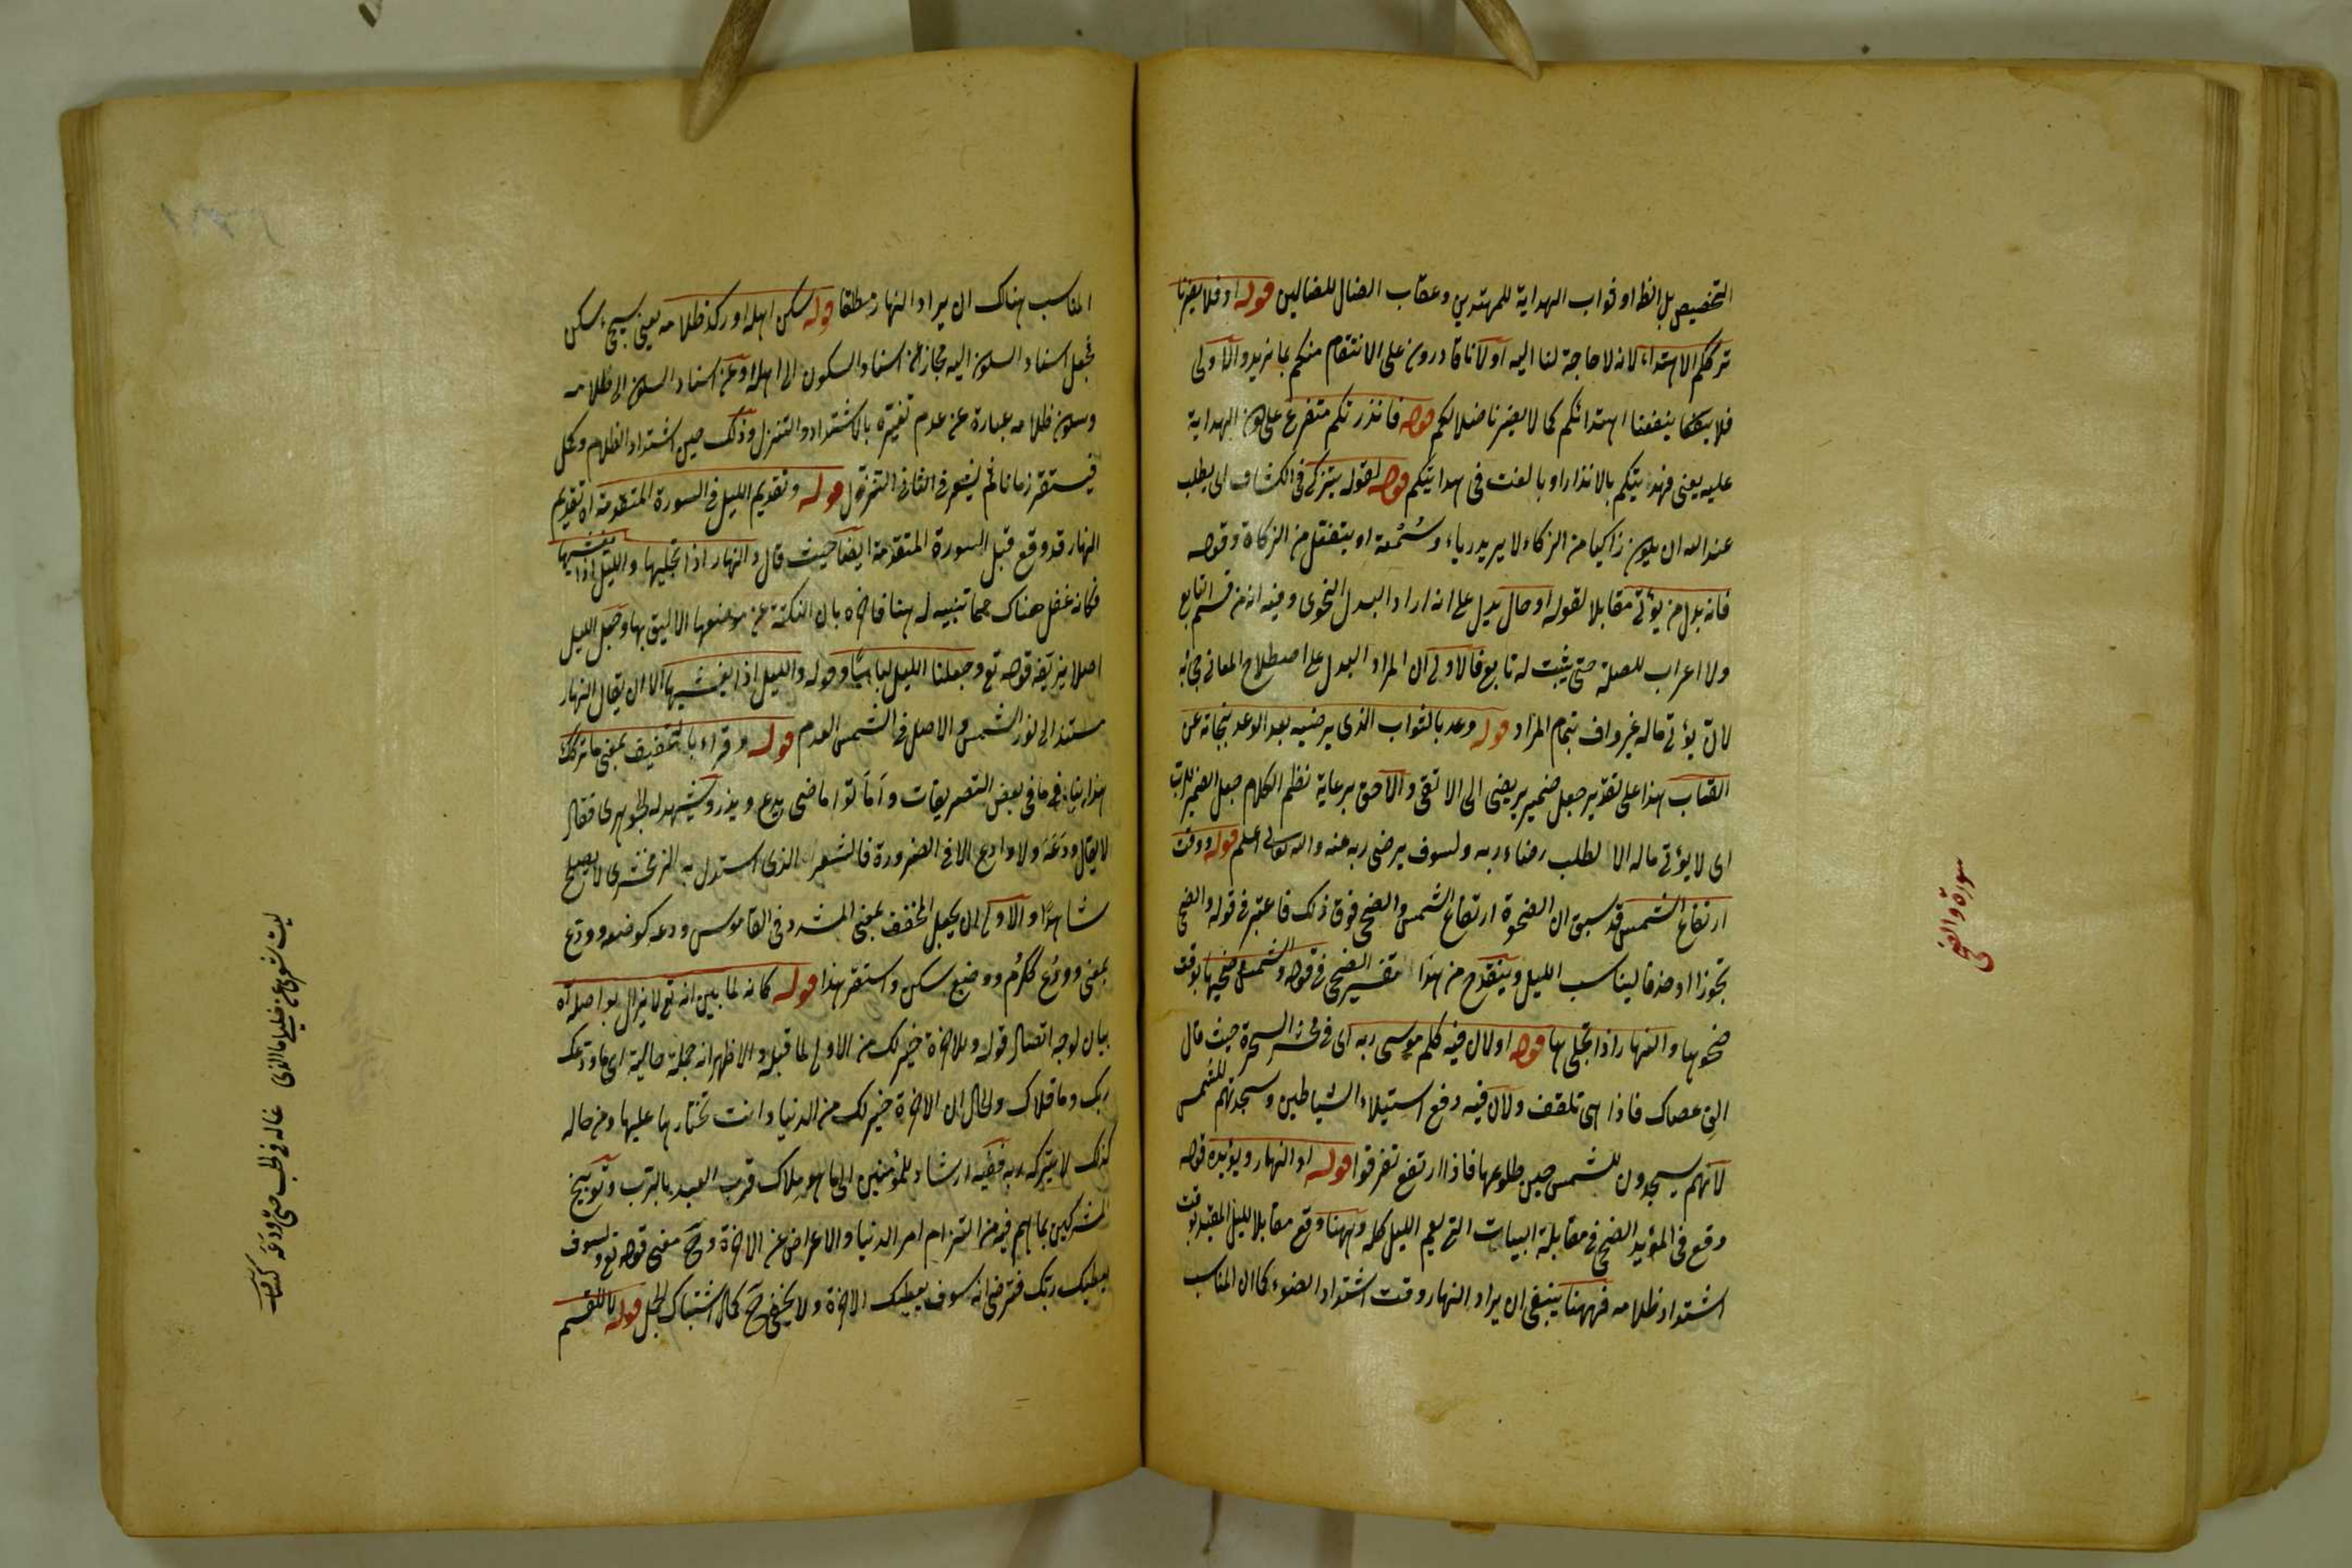 التخصيص بل انظ او ثواب الهداية للمهتدي وعقاب الضال للضالين قوله او فلا يضرنا
ترككم الاهتداء لانه لا حاجة لنا اليه او لانا قادرون على الانتقام منكم بما نريد والاولى
فلا ينفعنا اهتدائكم كما لا يضرنا ضلالكم قوله فانذرتكم متفرع على هون الهداية
عليه يعنى فهديتكم بالانذار او بالغت فى هدايتكم قوله لقوله يتزكى فى الكشاف اى يطلب
عند الله ان يكون زاكيا من الزكاء لا يريد رياء وسُمْعة او يتفعّل من الزكاة وقوله
فانه بدل من يؤتى مقابلا لقوله او حال يدل على انه اراد البدل النحوى وفيه انه من قسم التابع
ولا اعراب للصلة حتى يثبت له تابع فالاولى ان المراد البدل على اصطلاح المعانى
لان يؤتى ماله غير واف بتمام المراد قوله وعد بالثواب الذى يرضيه بعد الوعد بنجاته عن
العقاب هذا على تقدير جعل ضمير يرضى الى الاتقى والاحق برعاية نظم الكلام جعل الضمير للرب
اى لا يؤتى ماله الا لطلب رضاء ربه ولسوف يرضى ربه عنه والله تعالى اعلم قوله ووقت
ارتفاع الشمس قد سبق ان الضحوة ارتفاع الشمس والضحى فوق ذلك فاعتبر فى قوله والضحى
تجوزا او حذفا ليناسب الليل وينقدح من هذا تفسير الضحى فى قوله والشمس وضحيها بوقت
ضحوها والنهار اذا تجلى لها قوله او لان فيه كلم موسى ربه اى فى محشر السحرة حيث قال
الق عصاك فاذا هى تلقف ولان فيه دفع استيلاء الشياطين وسجدتهم للشمس
لانهم يسجدون للشمس حين طلوعها فاذا ارتفع تفرقوا قوله او النهار ويؤيده قوله
وقع فى المؤيد الضحى فى مقابلة البيات التى يعم الليل كله وههنا وقع مقابلا لليل المقيد بوقت
اشتداد ظلامه فههنا ينبغى ان يراد النهار وقت اشتداد الضوء كما ان المناسب
سورة والضحى
المناسب هناك ان يراد النهار مطلقا قوله سكن اهله او ركد ظلامه يعنى سجى سكن
فجعل اسناد السكون اليه مجازا عن اسناد السكون الى اهله او عن اسناد السكون الى ظلامه
وسكون ظلامه عبارة عن عدم تغيّره بالاشتداد والتنزل وذلك حين اشتداد الظلام وكمل
فيستقر زمانا ثم ليشرع فى الثانى التنزل قوله وتقديم الليل فى السورة المتقدمة اه تقديم
النهار قد وقع قبل السورة المتقدمة ايضا حيث قال والنهار اذا تجليها والليل اذا يغشيها
فكانه غفل هناك عما تنبيه له هنا فاخره بان النكتة عن موضعها الاليق بها وجعل الليل
اصلا يزيّفه قوله تع وجعلنا الليل لباسًا وقوله والليل اذا يغشيها الا ان يقال النهار
مستند الى نور الشمس والاصل فى الشمس العدم قوله وقرء بالتخفيف بمعنى ما تركك
هذا ينافى ما فى بعض التصريفات واَمَاتوا ماضى يدع ويذر ويشهد له الجوهرى فقال
لا يقال ودَعَهُ ولا وادع الا فى الضرورة فالشعر الذى استدل به الزمخشرى لا يصلح
شاهدًا والاولى ان يجعل المخفف بمعنى المشدد فى القاموس ودعه كوضعه وودّع
بمعنى وودُع ككرُم ووضع سكن واستقر هذا قوله كانه لما بين انه تع لا يزال يواصله اه
بيان لوجه اتصال قوله وللاخرة خير لك من الاولى لما قبله والاظهر انه جملة حالية اى ما ودعك
ربك وما قلاك والحال ان الاخرة خير لك من الدنيا وانت تختارها عليها ومن حاله
كذلك لا يتركه ربه ففيه ارشاد للمؤمنين الى ما هو ملاك قرب العبد بالرب وتوبيخ
المشركين بما هم فيه من التزام امر الدنيا والاعراض عن الاخرة وح معنى قوله تع ولسوف
يعطيك ربك فترضى انه سوف يعطيك الاخرة ولا يخفى ح كمال اشتباك الجمل قوله لا للقسم
ليت شعرى عن خليلى ما الذى غاله فى الحب حتى ودَعَه